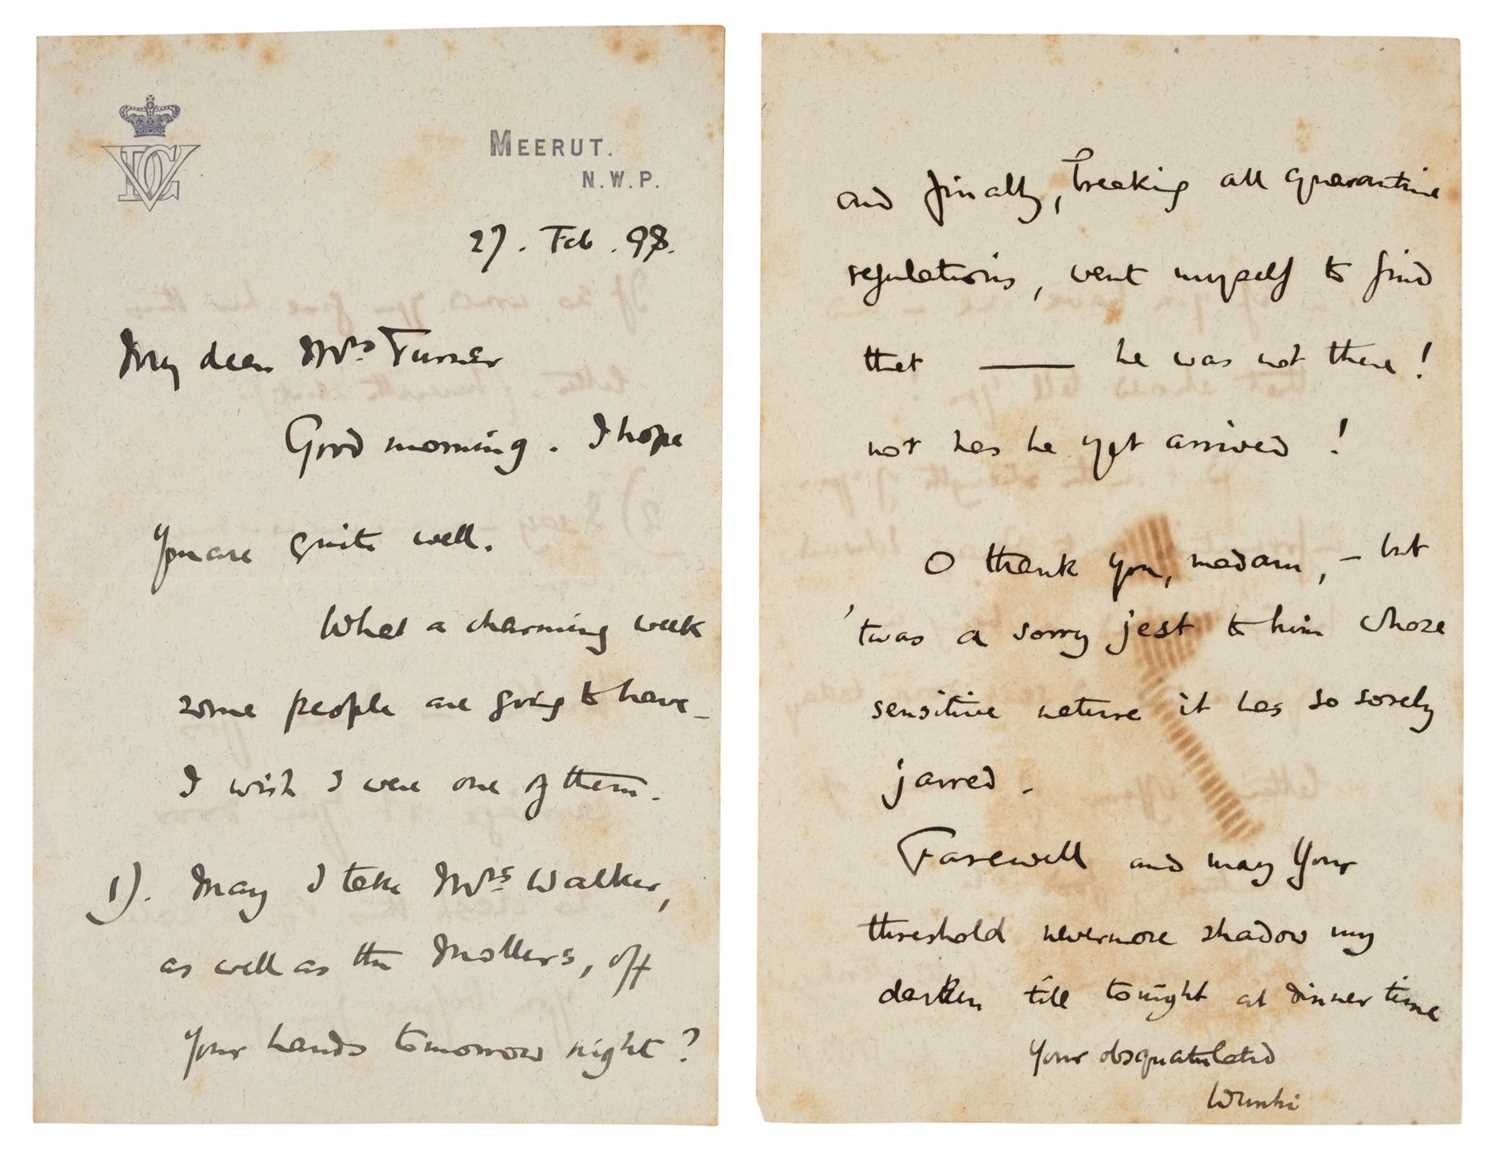 MEERUT.
N.W.P.
27. Feb. 98.
My dear Mrs Turner
Good morning. I hope
you are quite well.
What a charming week
some people are going to have –
I wish I were one of them.
1). May I take Mrs Walker,
as well as the Mollers, off
your hands tomorrow night?
and finally, breaking all quarantine
regulations, went myself to find
that —— he was not there!
nor has he yet arrived!
O thank you, madam, – but
'twas a sorry jest to him whose
sensitive nature it has so sorely
jarred.
Farewell and may your
threshold nevermore shadow my
darken till tonight at dinner time
Your obsquatulated